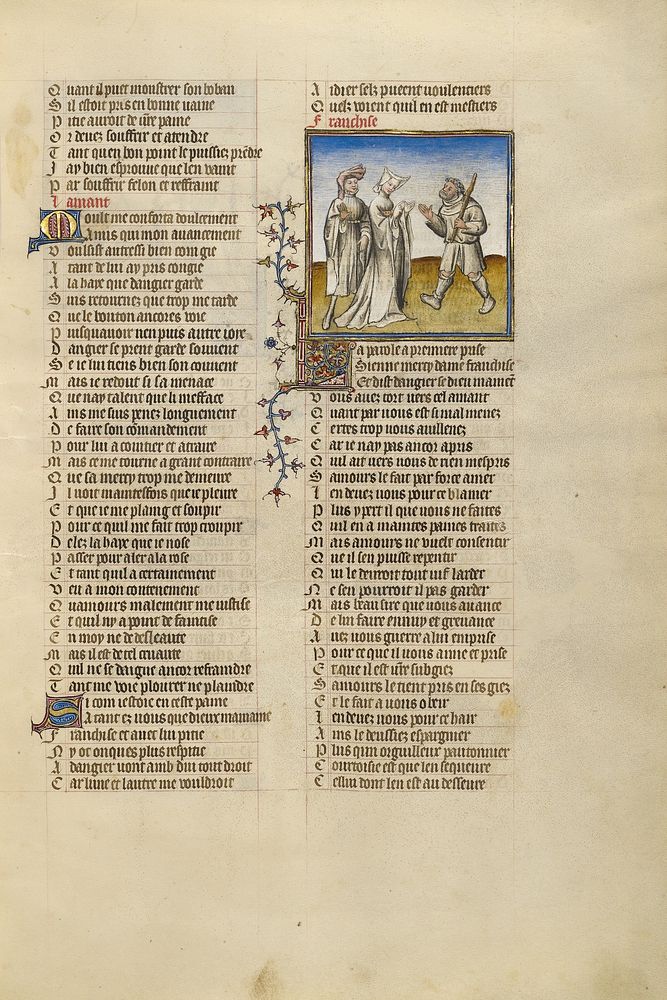 Quant il puet monstrer son boban
Sil estoit pris en bonne vaine
Pitie auroit de vre paine
Or devez souffrir et atendre
Tant quen bon point le puissiez prendre
Jay bien esprouve que len vaint
Par souffrir felon et reffraint
Lamant
Moult me conforta doulcement
Amis qui mon avancement
Voulsist autressi bien com gie
Atant de lui ay pris congie
A la haye que dangier garde
Suis retournez que trop me tarde
Que le bouton ancores voie
Puisquavoir nen puis autre ioye
Dangier se prent garde souvent
Se ie lui tiens bien son couvent
Mais ie redout si sa menace
Que nay talent que li mefface
Ains me suis penez longuement
De faire son comandement
Pour lui acointier et atraire
Mais ce me tourne a grant contraire
Que sa mercy trop me demeure
Il voit maintesfois que ie pleure
Et que ie me plaing et soupir
Pour ce quil me fait trop croupir
Delez la haye que ie nose
Passer pour aler a la rose
Et tant quil a certainement
Veu a mon contenement
Quamours malement me iustise
Et quil ny a point de faintise
En moy ne de desleaute
Mais il est de tel cruaute
Quil ne se daigne ancor refraindre
Tant me voie plourer ne plaindre
Si com iestoie en ceste paine
Atant ez vous que dieux mamaine
Franchise et avec lui pitie
Ny ot onques plus respitie
A dangier vont amb dui tout droit
Car lune et lautre me vouldroit
Aidier selz pueent voulentiers
Quelz voient quil en est mestiers
Franchise
La parole a premiere prise
Sienne mercy dame franchise
Et dist dangier se dieu mament
Vous avez tort vers cel amant
Quant par vous est si mal menez
Certes trop vous avillenez
Car ie nay pas ancor apris
Quil ait vers vous de rien mespris
Samours le fait par force amer
En devez vous pour ce blamer
Plus y pert il que vous ne faites
Quil en a maintes paines traites
Mais amours ne vuelt consentir
Que il sen puisse repentir
Qui le devroit tout vif larder
Ne sen pourroit il pas garder
Mais beau sire que vous avance
De lui faire ennuy et grevance
Avez vous guerre a lui emprise
Pour ce que il vous aime et prise
Et que il est vtre subgiez
Samours le tient pris en ses giez
Et le fait a vous obeir
En devez vous pour ce hair
Ains le deussiez espargnier
Plus qun orguilleux pautonnier
Courtoisie est que len sequeure
Cellui dont len est au desseure